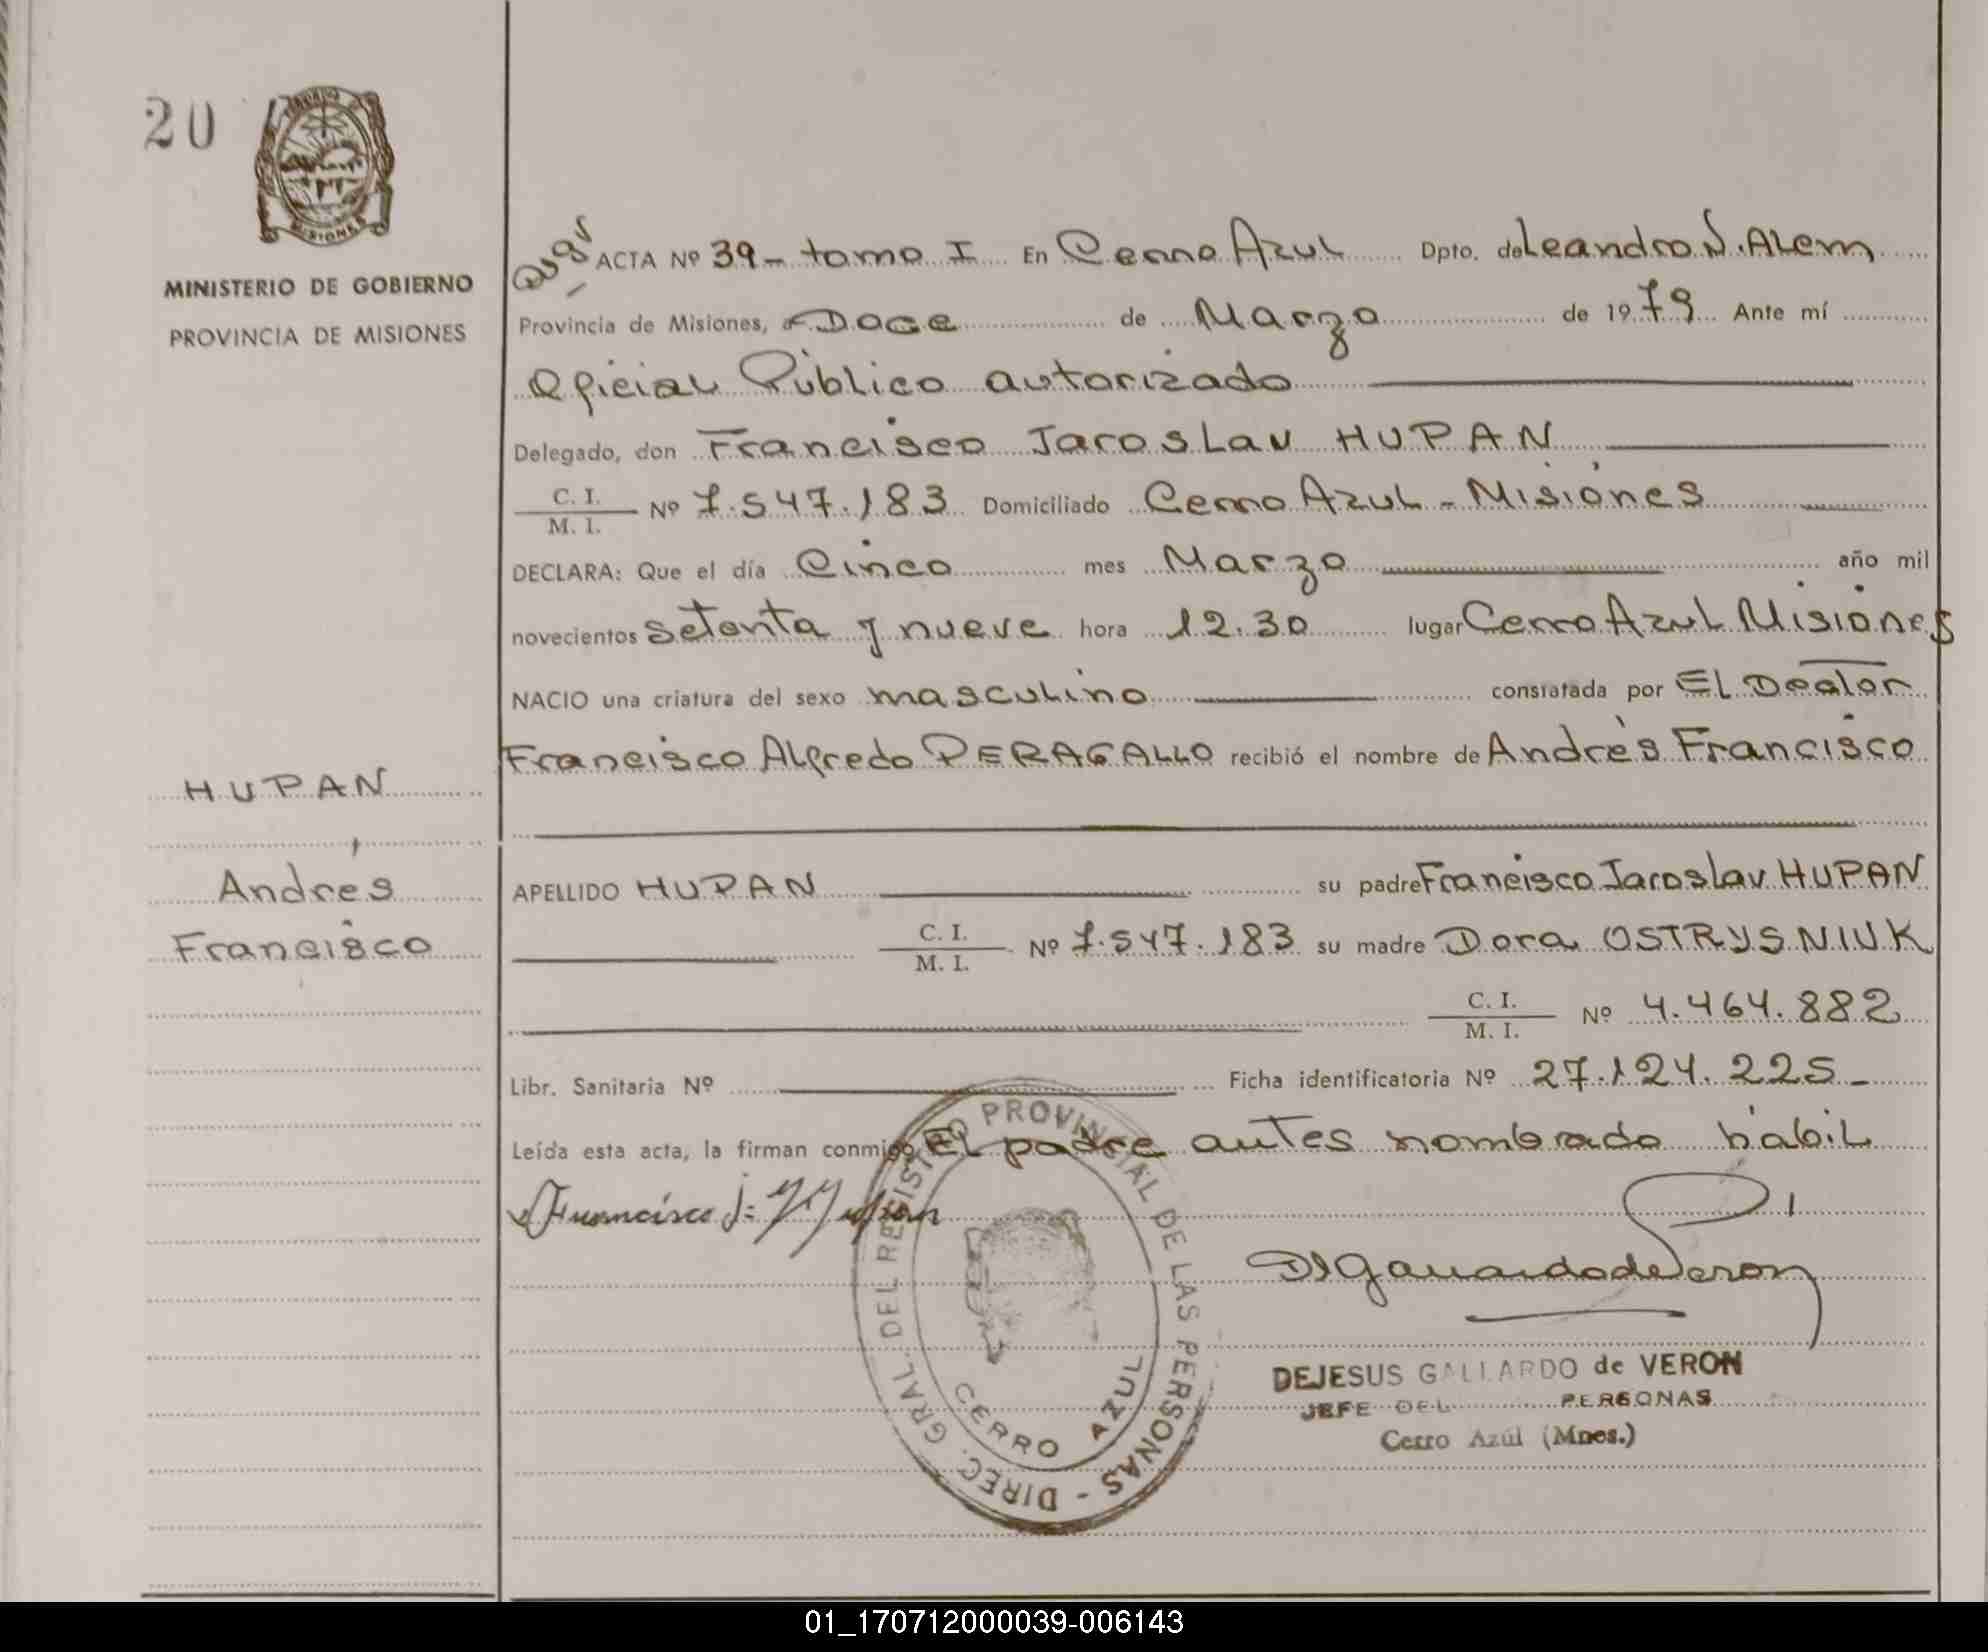 20
MISIONES
MINISTERIO DE GOBIERNO
PROVINCIA DE MISIONES
HUPAN
Andrés
Francisco
ACTA Nº 39 - tomo I En Cerro Azul Dpto. de Leandro N. Alem
Provincia de Misiones, a Doce de Marzo de 1979 Ante mí
Oficial Público autorizado
Delegado, don Francisco Jaroslav HUPAN
C. I.
M. I. Nº 7.547.183 Domiciliado Cerro Azul - Misiones
DECLARA: Que el día Cinco mes Marzo año mil
novecientos setenta y nueve hora 12.30 lugar Cerro Azul Misiones
NACIO una criatura del sexo masculino constatada por El Doctor
Francisco Alfredo PERAGALLO recibió el nombre de Andrés Francisco
APELLIDO HUPAN su padre Francisco Jaroslav HUPAN
C. I.
M. I. Nº 7.547.183 su madre Dora OSTRYSNIUK
C. I.
M. I. Nº 4.464.882
Libr. Sanitaria Nº Ficha identificatoria Nº 27.124.225 -
Leída esta acta, la firman conmigo El padre antes nombrado hábil
Francisco J. Hupan
DIREC. GRAL. DEL REGISTRO PROVINCIAL DE LAS PERSONAS -
CERRO AZUL
DGallardodeVeron
DEJESUS GALLARDO de VERON
JEFE DEL PERSONAS
Cerro Azúl (Mnes.)
01_170712000039-006143